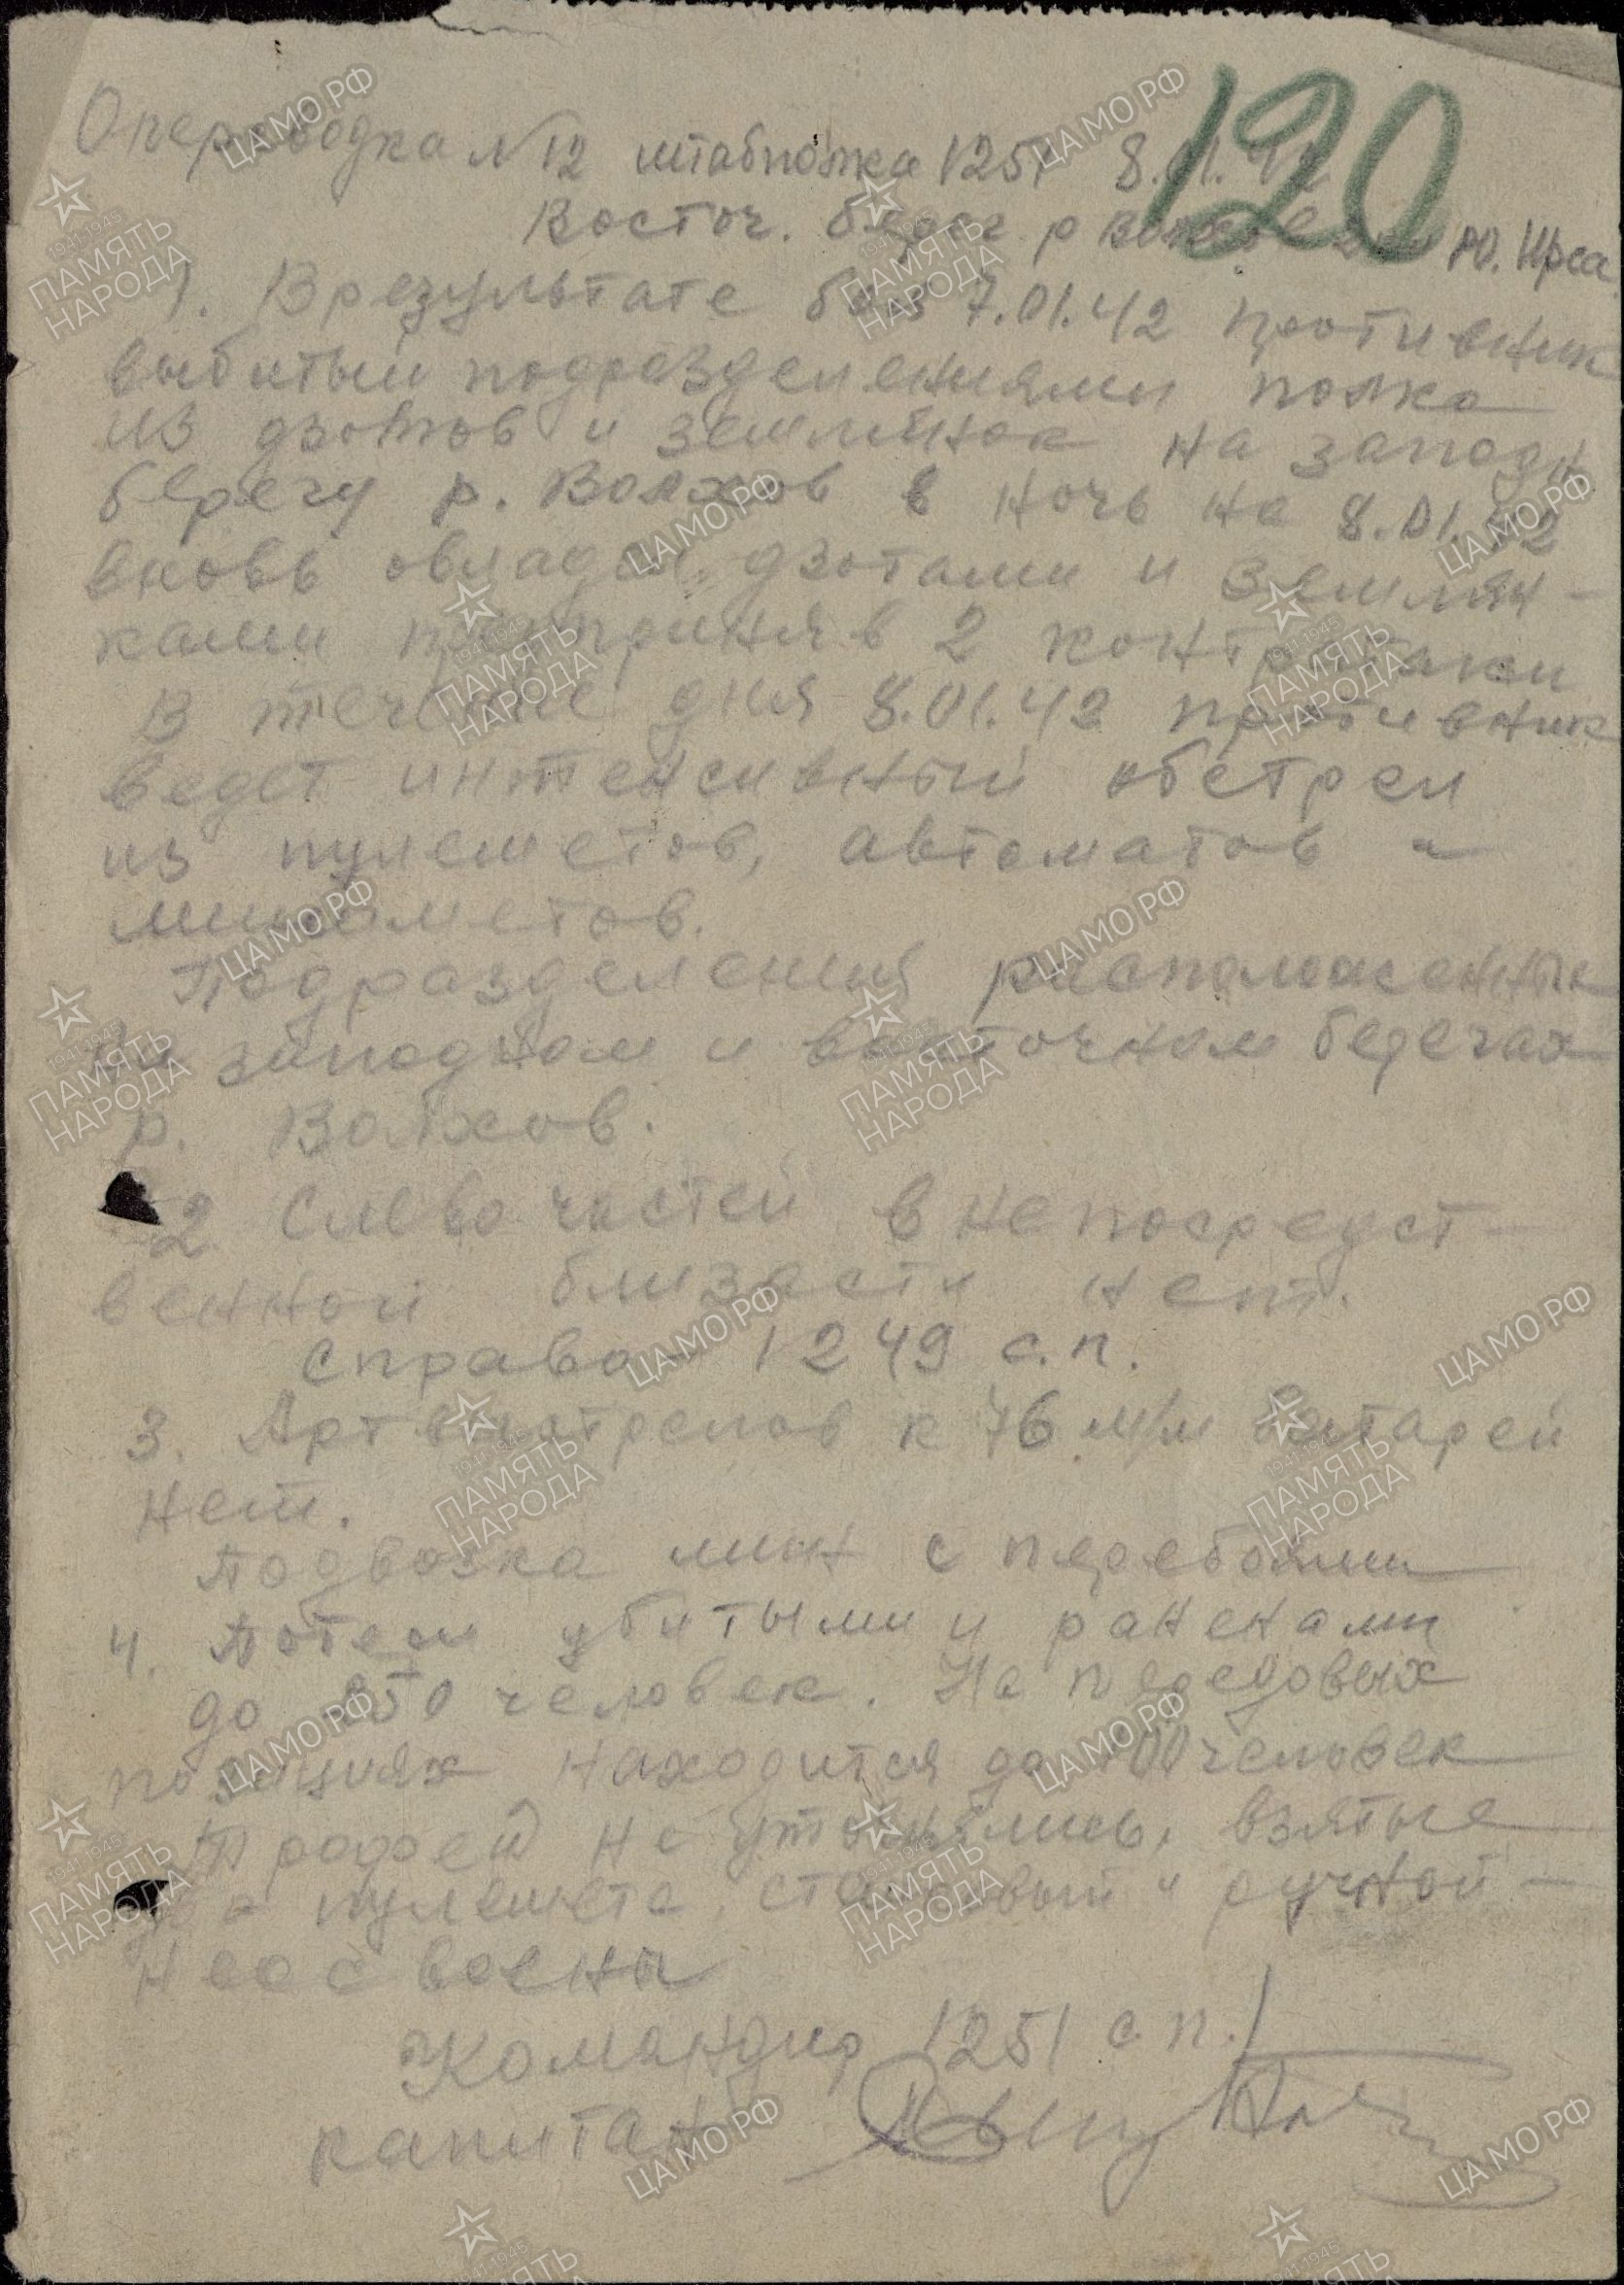 120
Оперсводка № 12 штабполка 1251 8.01.42
Восточ. берег р Ю. Ирса
1. В результате боя 7.01.42 противник
выбитый подразделениями полка
из дзотов и землянок на западн
берегу р. Волхов в ночь на 8.01.42
вновь овладел дзотами и землян-
ками предприняв 2 контратаки
В течение дня 8.01.42 противник
ведет интенсивный обстрел
из пулеметов, автоматов и
минометов.
Подразделения расположенны
на западном и восточном берегах
р. Волхов.
2 Слева частей в непосредст-
венной близости нет.
Справа - 1249 с.п.
3. Арт выстрелов к 76 м/м батарей
нет.
Подвозка мин с перебоями
4. Потери убитыми и ранеными
до человек. На передовых
позициях находится до человек
Трофеи не уточнялись, взятые
два пулемета, станковый и ручной -
неосвоены
Командир 1251 с.п.
капитан
ЦАМО РФ
1941-1945
ПАМЯТЬ
НАРОДА